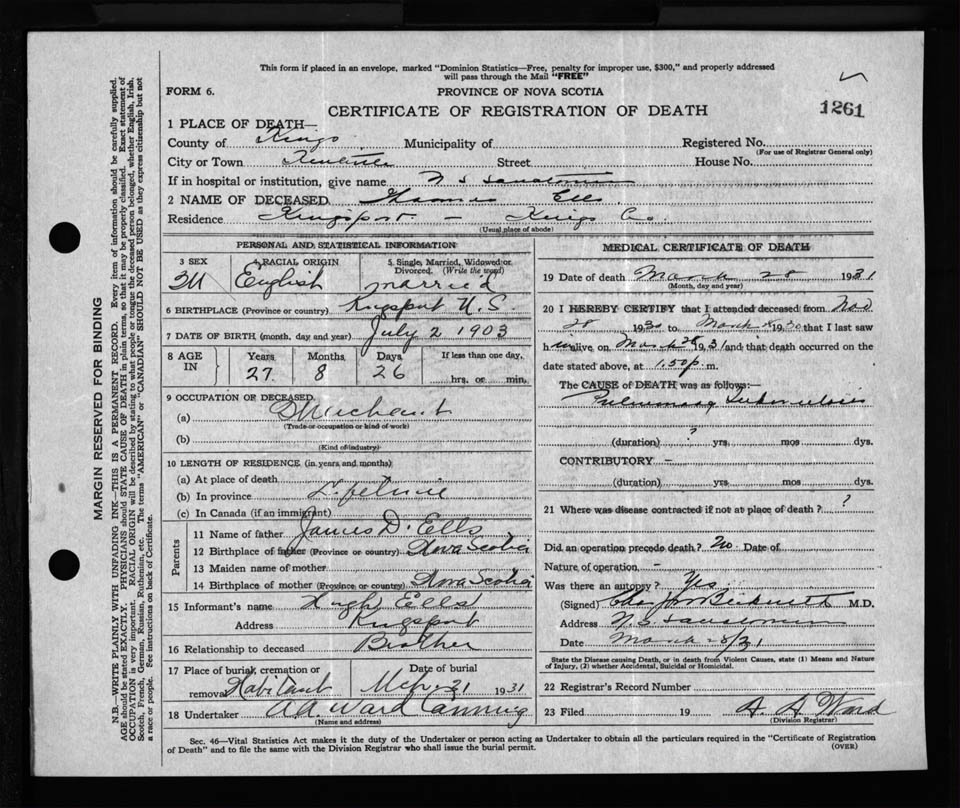 This form if placed in an envelope, marked "Dominion Statistics—Free, penalty for improper use, $300," and properly addressed
will pass through the Mail "FREE"
FORM 6.
PROVINCE OF NOVA SCOTIA
CERTIFICATE OF REGISTRATION OF DEATH
1261
1 PLACE OF DEATH—
County of Kings Municipality of Registered No.
(For use of Registrar General only)
City or Town Street House No.
If in hospital or institution, give name N S Sanatorium
2 NAME OF DECEASED Thomas Ells
Residence Kingsport – Kings Co.
(Usual place of abode)
PERSONAL AND STATISTICAL INFORMATION
3 SEX 4 RACIAL ORIGIN 5 Single, Married, Widowed or
Divorced. (Write the word)
M English married
6 BIRTHPLACE (Province or country) Kingsport N.S
7 DATE OF BIRTH (month, day and year) July 2 1903
8 AGE IN Years Months Days If less than one day,
27 8 26 hrs. or min.
9 OCCUPATION OF DECEASED
(a) Merchant
(Trade or occupation or kind of work)
(b)
(Kind of industry)
10 LENGTH OF RESIDENCE (in years and months)
(a) At place of death
(b) In province Lifetime
(c) In Canada (if an immigrant)
Parents
11 Name of father James D. Ells
12 Birthplace of father (Province or country) Nova Scotia
13 Maiden name of mother
14 Birthplace of mother (Province or country) Nova Scotia
15 Informant's name Hugh Ells
Address Kingsport
16 Relationship to deceased Brother
17 Place of burial, cremation or Date of burial
removal Habitant 31 1931
18 Undertaker A.A. Ward Canning
(Name and address)
MEDICAL CERTIFICATE OF DEATH
19 Date of death March 28 1931
(Month, day and year)
20 I HEREBY CERTIFY that I attended deceased from Nov
28 1930 to March 1930 that I last saw
him alive on March 28 1931 and that death occurred on the
date stated above, at 1.50 p. m.
The CAUSE of DEATH was as follows:—
Pulmonary Tuberculosis
?
(duration) yrs. mos dys.
CONTRIBUTORY –
(duration) yrs. mos. dys.
21 Where was disease contracted if not at place of death? ?
Did an operation precede death? No Date of
Nature of operation –
Was there an autopsy? Yes
(Signed) M.D.
Address N.S. Sanatorium
Date March 28/31
State the Disease causing Death, or in death from Violent Causes, state (1) Means and Nature
of Injury, (2) whether Accidental, Suicidal or Homicidal.
22 Registrar's Record Number
23 Filed 19 A. A. Ward
(Division Registrar)
Sec. 46—Vital Statistics Act makes it the duty of the Undertaker or person acting as Undertaker to obtain all the particulars required in the "Certificate of Registration
of Death" and to file the same with the Division Registrar who shall issue the burial permit. (OVER)
MARGIN RESERVED FOR BINDING
N.B.—WRITE PLAINLY WITH UNFADING INK—THIS IS A PERMANENT RECORD. Every item of information should be carefully supplied.
AGE should be stated EXACTLY. PHYSICIANS should STATE CAUSE OF DEATH in plain terms, so that it may be properly classified. Exact statement of
OCCUPATION is very important. RACIAL ORIGIN will be described by stating to what people or tongue the deceased person belonged, whether English, Irish,
Scotch, French, German, Russian, Ruthenian, etc. The terms "AMERICAN" or "CANADIAN" SHOULD NOT BE USED as they express citizenship but not
a race or people. See instructions on back of Certificate.